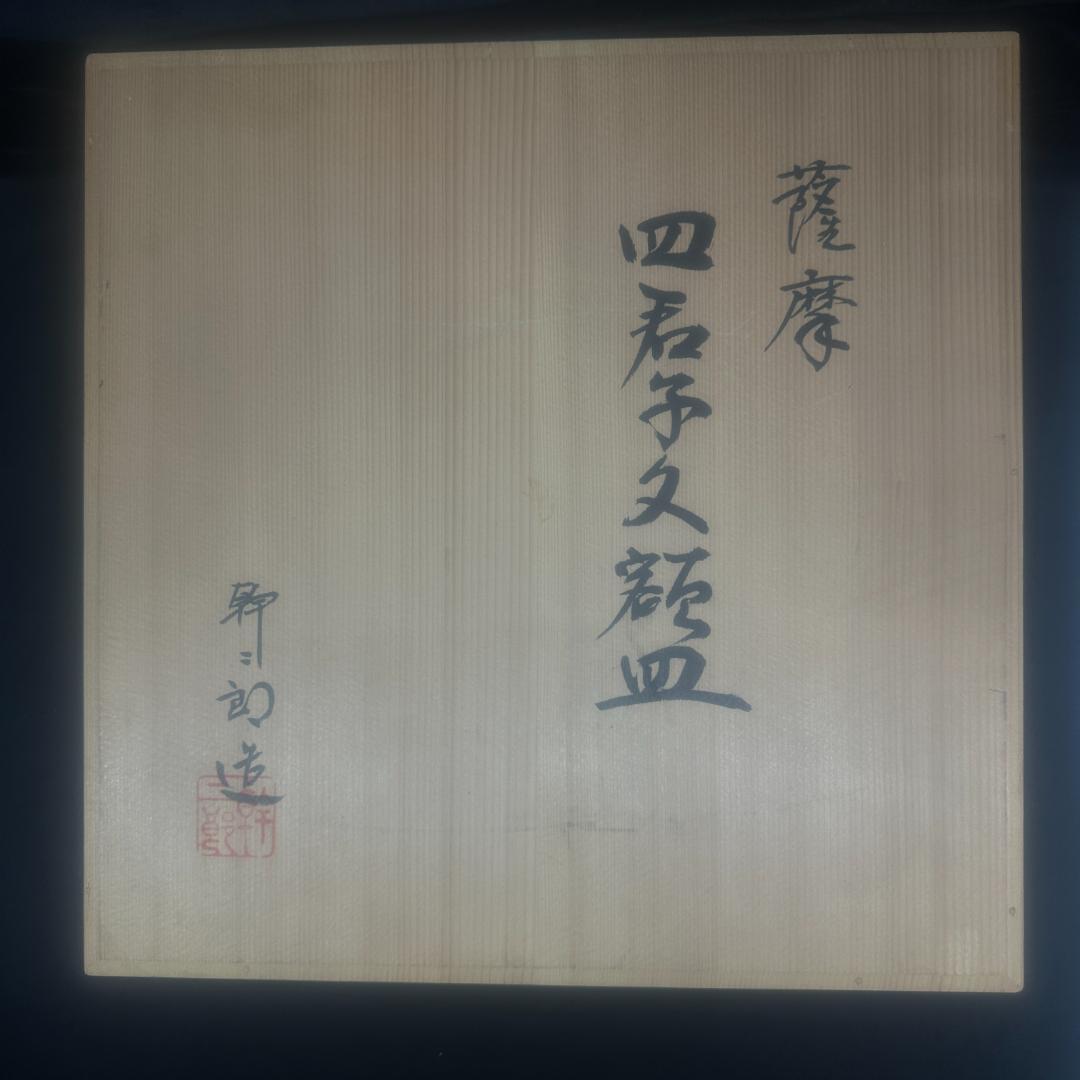 薩摩
四君子文額皿
二郎造